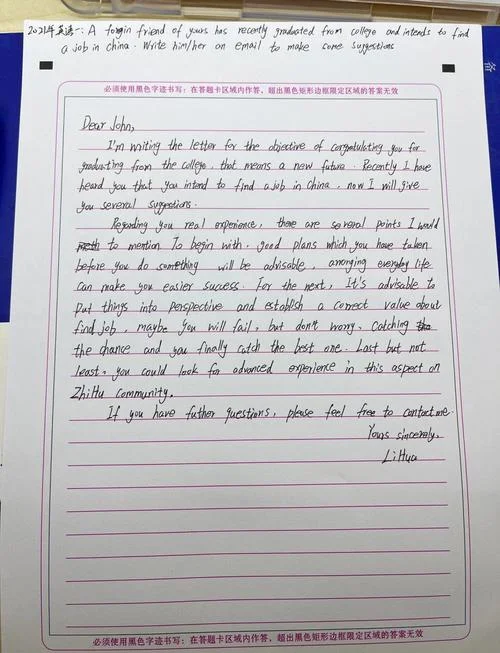 2021年英语一: A forgin friend of yours has recently graduated from college and intends to find
a job in china. Write him/her an email to make some suggestions
必须使用黑色字迹书写：在答题卡区域内作答，超出黑色矩形边框限定区域的答案无效
Dear John,
I'm writing the letter for the objective of congratulating you for
graduating from the college, that means a new future. Recently I have
heard you that you intend to find a job in China, now I will give
you several suggestions.
Regarding you real experience, there are several points I would
to mention To begin with, good plans which you have taken
before you do something will be advisable, arranging everyday life
can make you easier success. For the next, It's advisable to
put things into perspective and establish a correct value about
find job, maybe you will fail, but don't worry, Catching
the chance and you finally catch the best one. Last but not
least, you could look for advanced experience in this aspect on
ZhiHu community.
If you have futher questions, please feel free to contact me.
Yours sincerely,
Li Hua
必须使用黑色字迹书写：在答题卡区域内作答，超出黑色矩形边框限定区域的答案无效